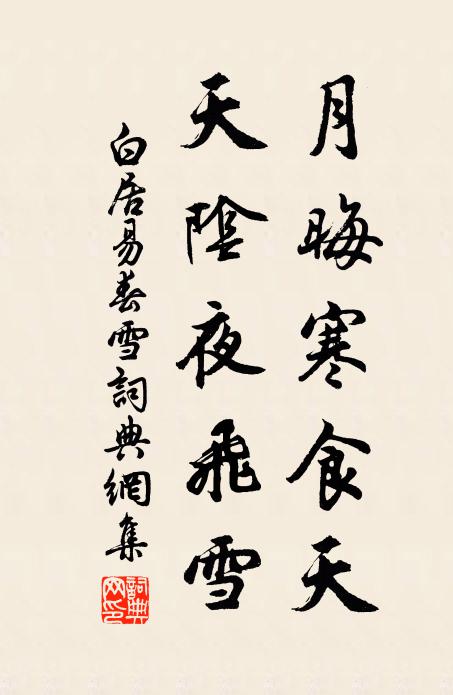 月晦寒食天
天陰夜飛雪
白居易春雪詞典網集
詞典網印